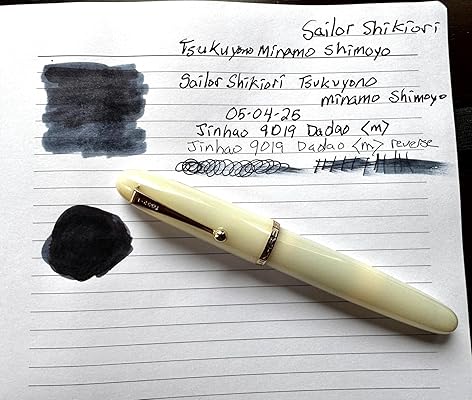 Sailor Shikiori
Tsukuyono Minamo Shimoyo
Sailor Shikiori Tsukuyono
minamo Shimoyo
05-04-25
Jinhao 9019 Dadao <m>
Jinhao 9019 Dadao <m> reverse